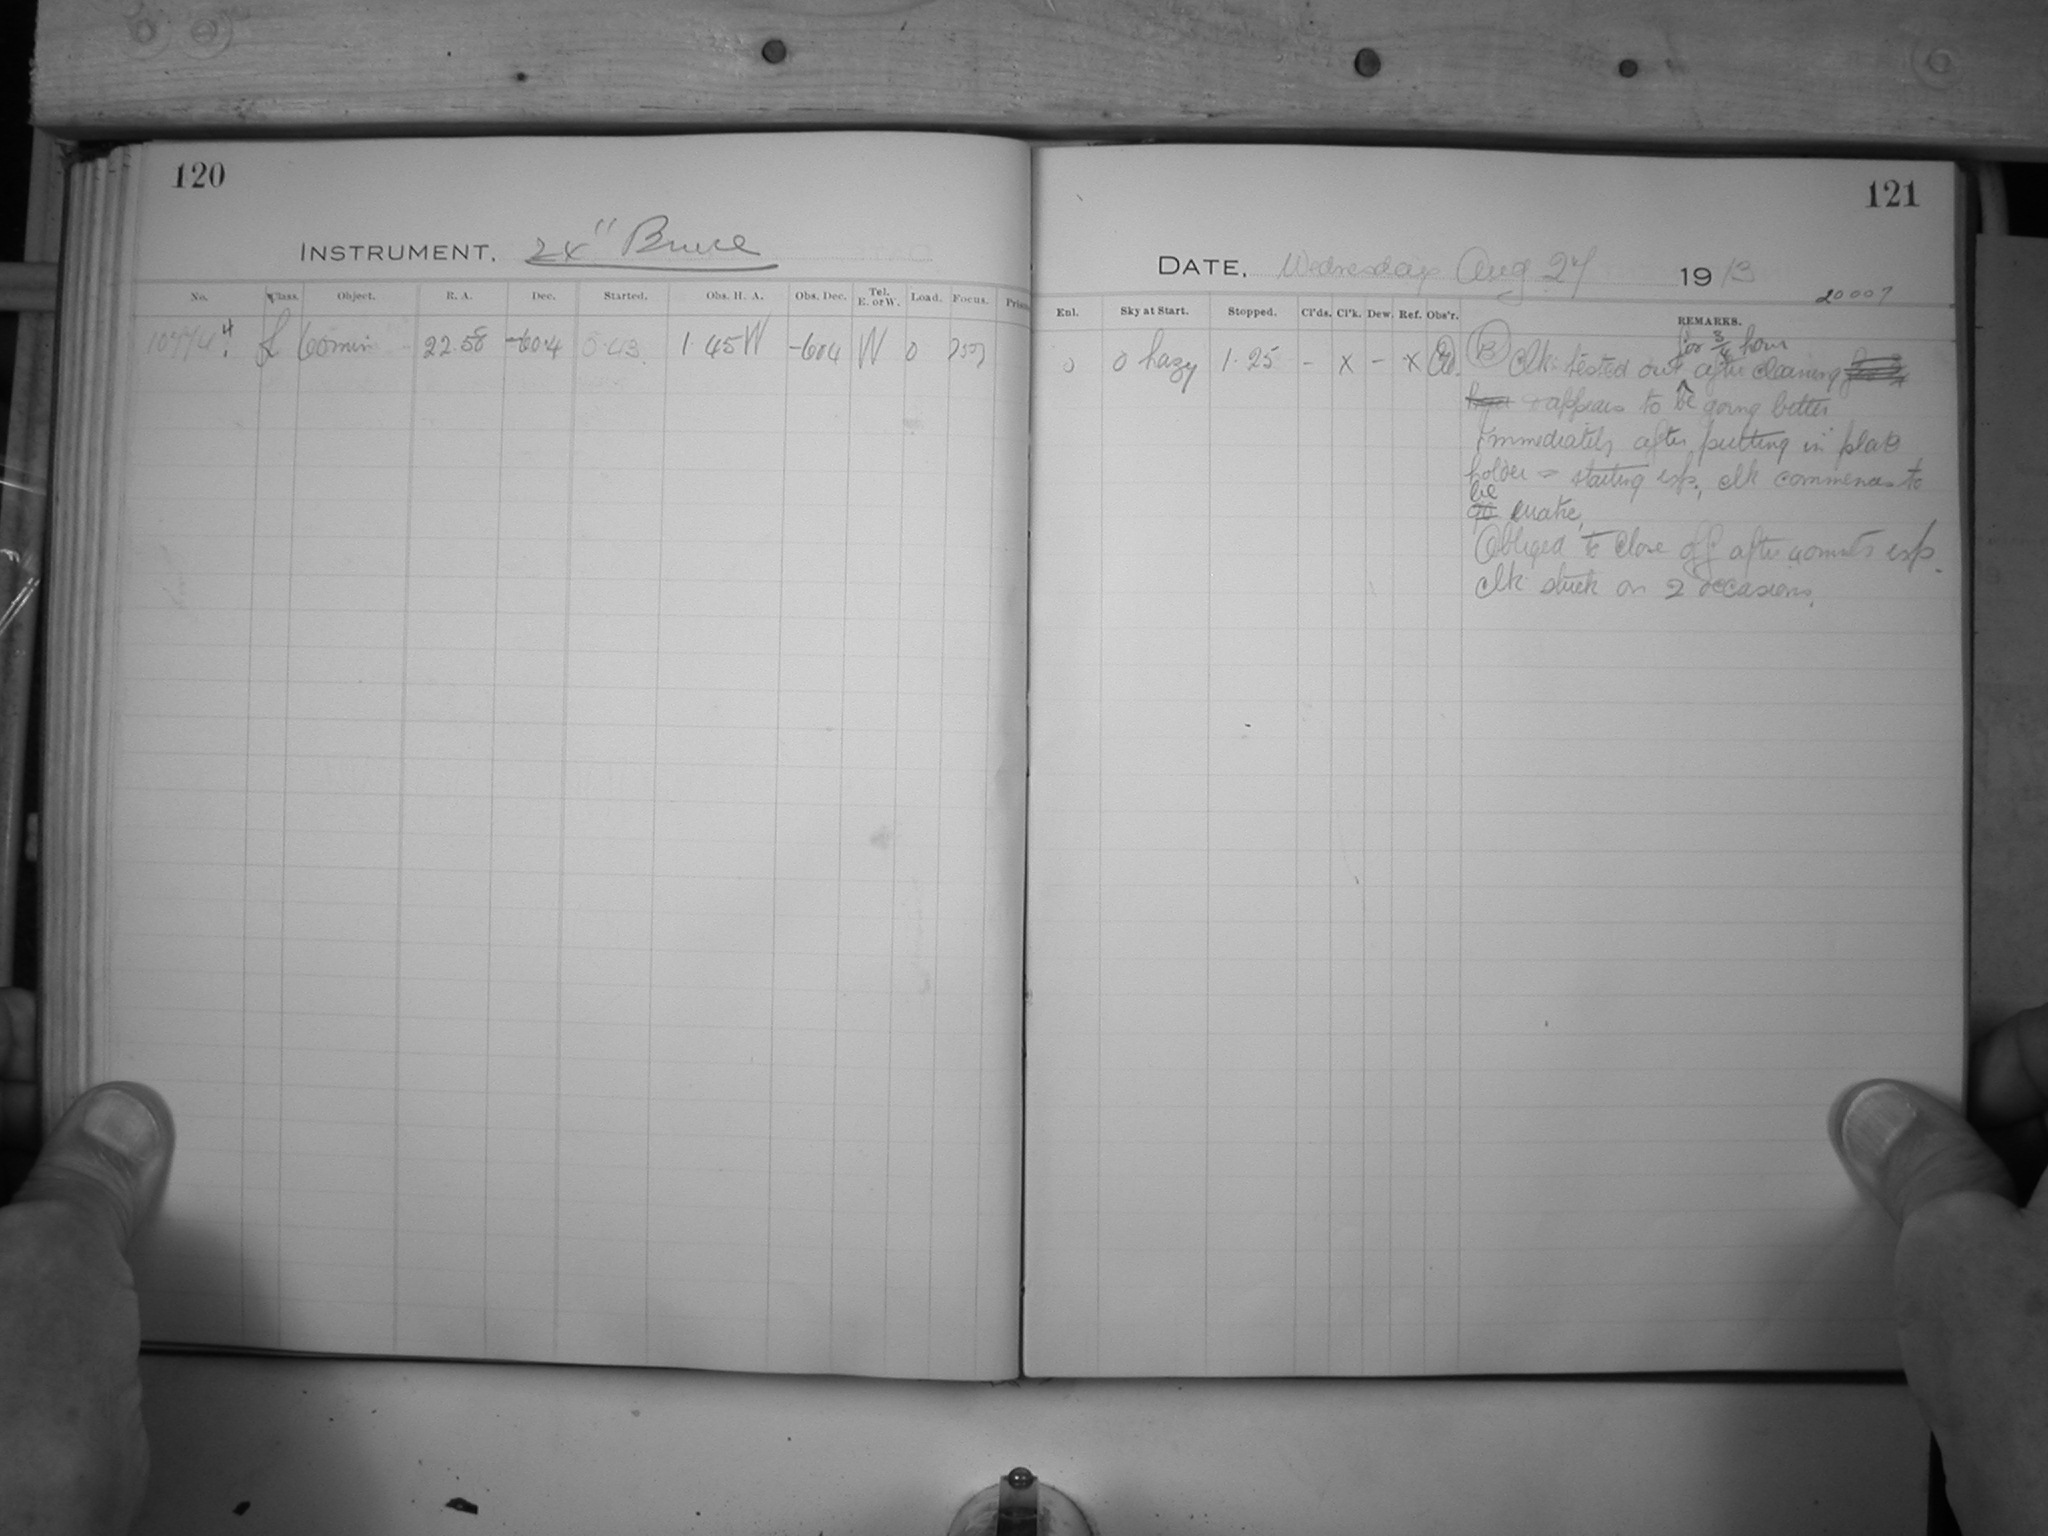 120
INSTRUMENT. 24" Bruce
No. Class. Object. R. A. Dec. Started. Obs. H. A. Obs. Dec. Tel. E. or W. Load. Focus.
L 60 min 22.58 -60.4 0.43 1.45 W -60.4 W 0
121
DATE, Wednesday Aug 27 1913
20007
Enl. Sky at Start. Stopped. Cl'ds. Cl'k. Dew. Ref. Obs'r. REMARKS.
0 0 hazy 1.25 - x - x
B Clk tested out for 3/4 hour after cleaning
appears to be going better
Immediately after putting in plate
holder = starting exp. clk commences to
be
Obliged to close off after 40 mts exp.
clk stuck on 2 occasions.